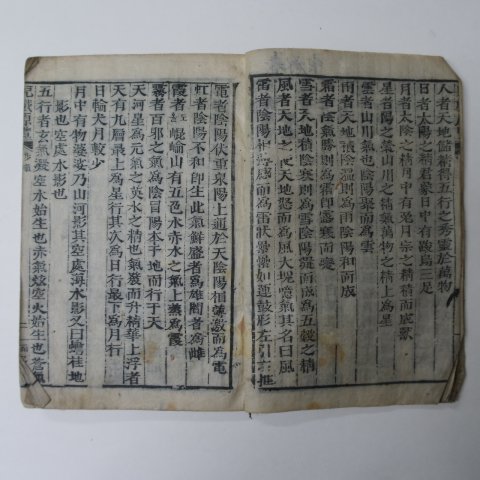 人者天地儲精得五行之秀靈於萬物
日者太陽之精君象日中有踆烏三足
月者太陰之精月中有兎月宗之精積而成獸
星者陽之榮山川之精氣萬物之精上爲星
雲者山川氣也陰陽聚而爲雲
雨者天地之氣陰陽溫則爲雨陰陽和而成
霜者陰氣勝則爲霜陰即露寒而變
雪者天地積陰寒則爲雪陰陽凝而成爲五穀之精
風者天地之使天地怒而爲風大塊噫氣其名曰風
雷者陰陽相薄感而爲雷狀纍纍如連鼓形左引右推
電者陰陽伏重泉陽上通於天陰陽相薄激而爲電
虹者陰陽不和即生此氣鮮盛者爲雄闇者爲雌
霞者崐崘山有五色水赤水之氣上蒸爲霞
霧者百邪之氣爲陰冒陽本于地而行于天
天河星爲元氣之英水之精也氣發而升精華上浮者
天有九層最上爲星行其次爲日行最下爲月行
日輪大月較少
月中有物婆娑乃山河影其空處海水影又曰蟾桂地
影也空處水影也
五行者玄氣凝空水始生也赤氣炫空火始生也蒼氣